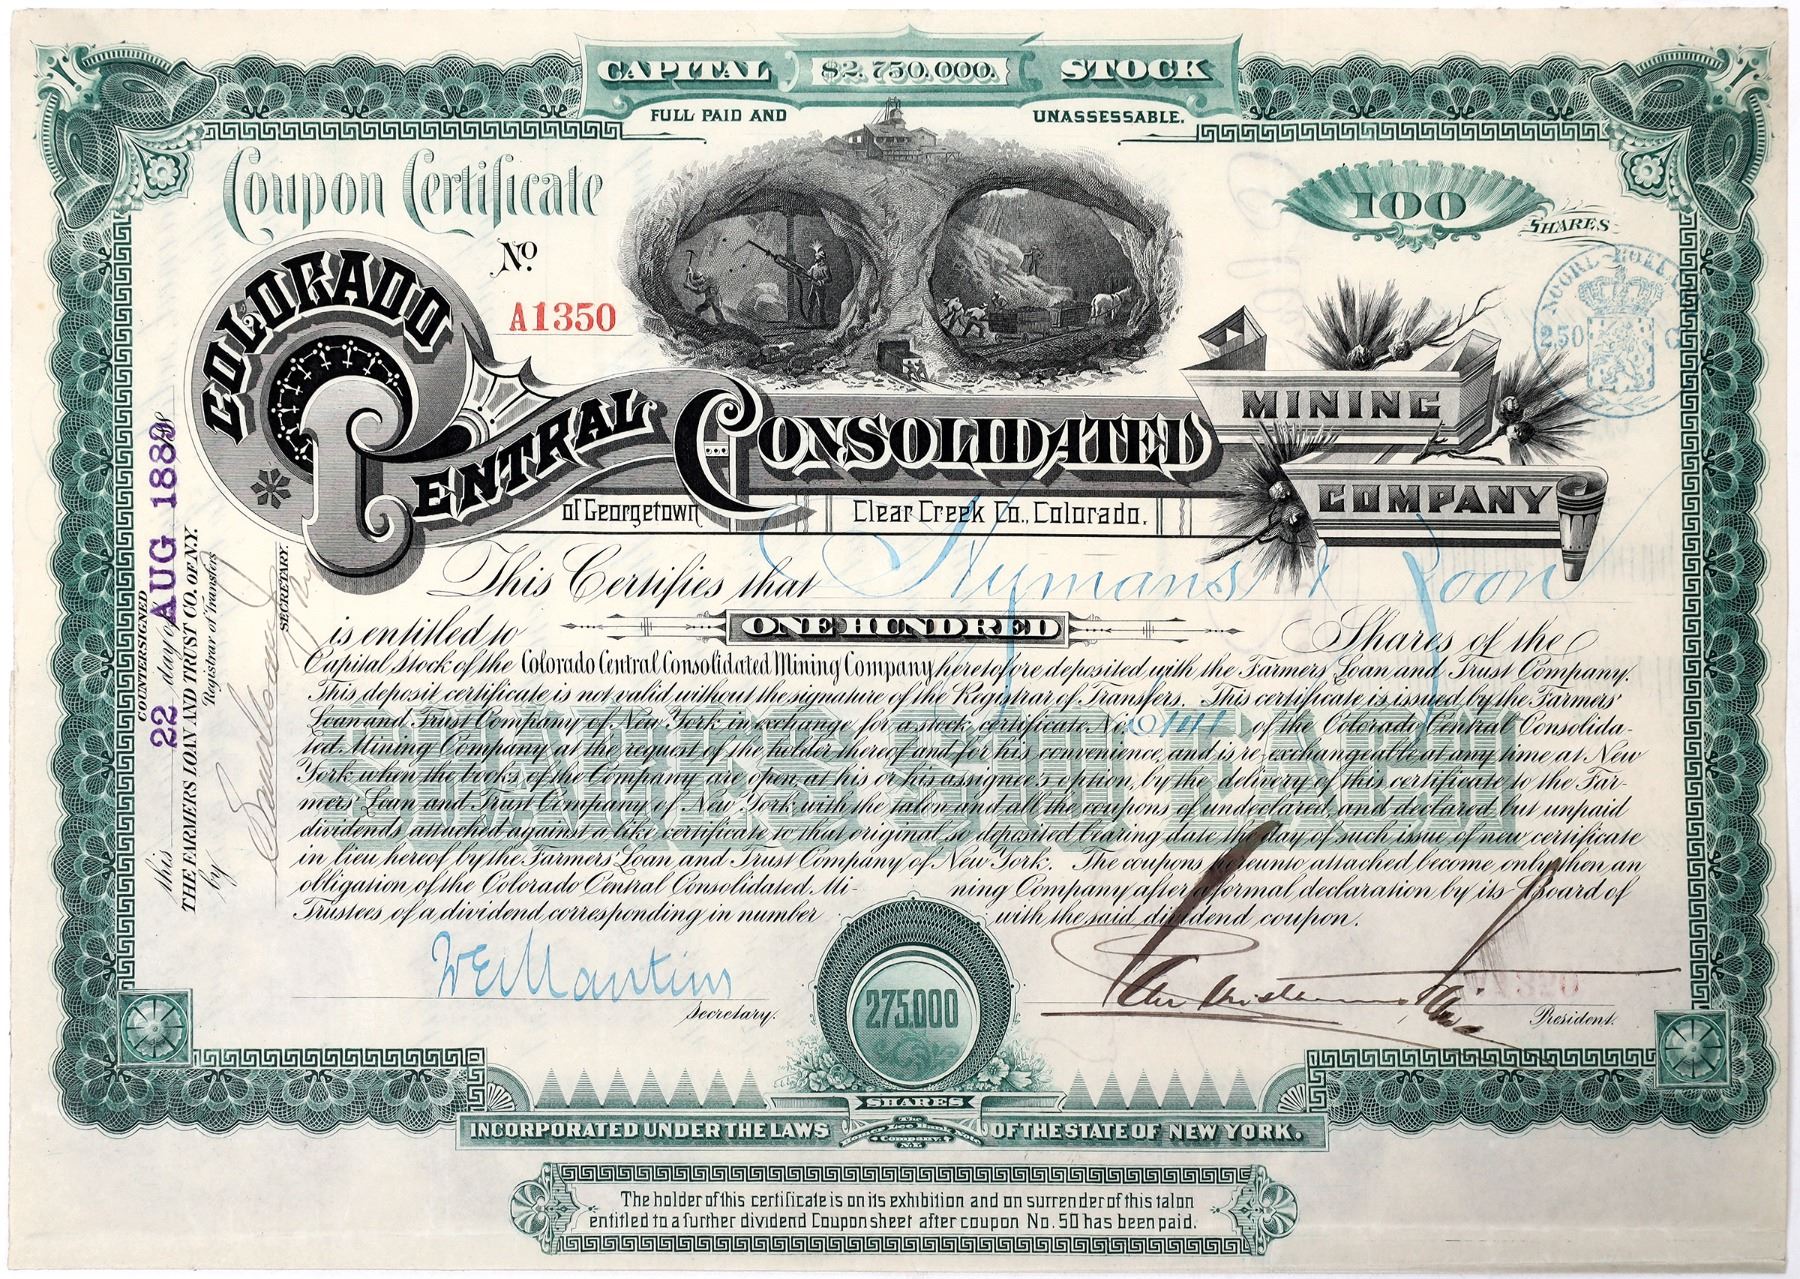 CAPITAL $2,750,000. STOCK
FULL PAID AND UNASSESSABLE.
Coupon Certificate
No.
A1350
100
SHARES
COLORADO
CENTRAL CONSOLIDATED
MINING
COMPANY
of Georgetown Clear Creek Co., Colorado.
2,50 G
This Certifies that Hymans & Zoon
is entitled to ONE HUNDRED Shares of the
Capital Stock of the Colorado Central Consolidated Mining Company heretofore deposited with the Farmers Loan and Trust Company.
This deposit certificate is not valid without the signature of the Registrar of Transfers. This certificate is issued by the Farmers'
Loan and Trust Company of New York in exchange for a stock certificate No. of the Colorado Central Consolida-
ted Mining Company at the request of the holder thereof and for his convenience, and is re-exchangeable at any time at New
York when the books of the Company are open, at his or his assignee's option, by the delivery of this certificate to the Far-
mers' Loan and Trust Company of New York with the talon and all the coupons of undeclared, and declared but unpaid
dividends attached against a like certificate to that original, so deposited bearing date the day of such issue of new certificate
in lieu hereof by the Farmers' Loan and Trust Company of New York. The coupons hereunto attached become only then an
obligation of the Colorado Central Consolidated Mi- ning Company after a formal declaration by its Board of
Trustees of a dividend corresponding in number with the said dividend coupon.
SHARES $10 EACH
W E Martins
Secretary.
President.
275.000
SHARES
INCORPORATED UNDER THE LAWS OF THE STATE OF NEW YORK.
The
Homer Lee Bank Note
Company.
N.Y.
The holder of this certificate is on its exhibition and on surrender of this talon
entitled to a further dividend Coupon sheet after coupon No. 50 has been paid.
COUNTERSIGNED
this 22 day of AUG 1889
THE FARMERS LOAN AND TRUST CO. OF N.Y.
by Registrar of Transfers
SECRETARY.